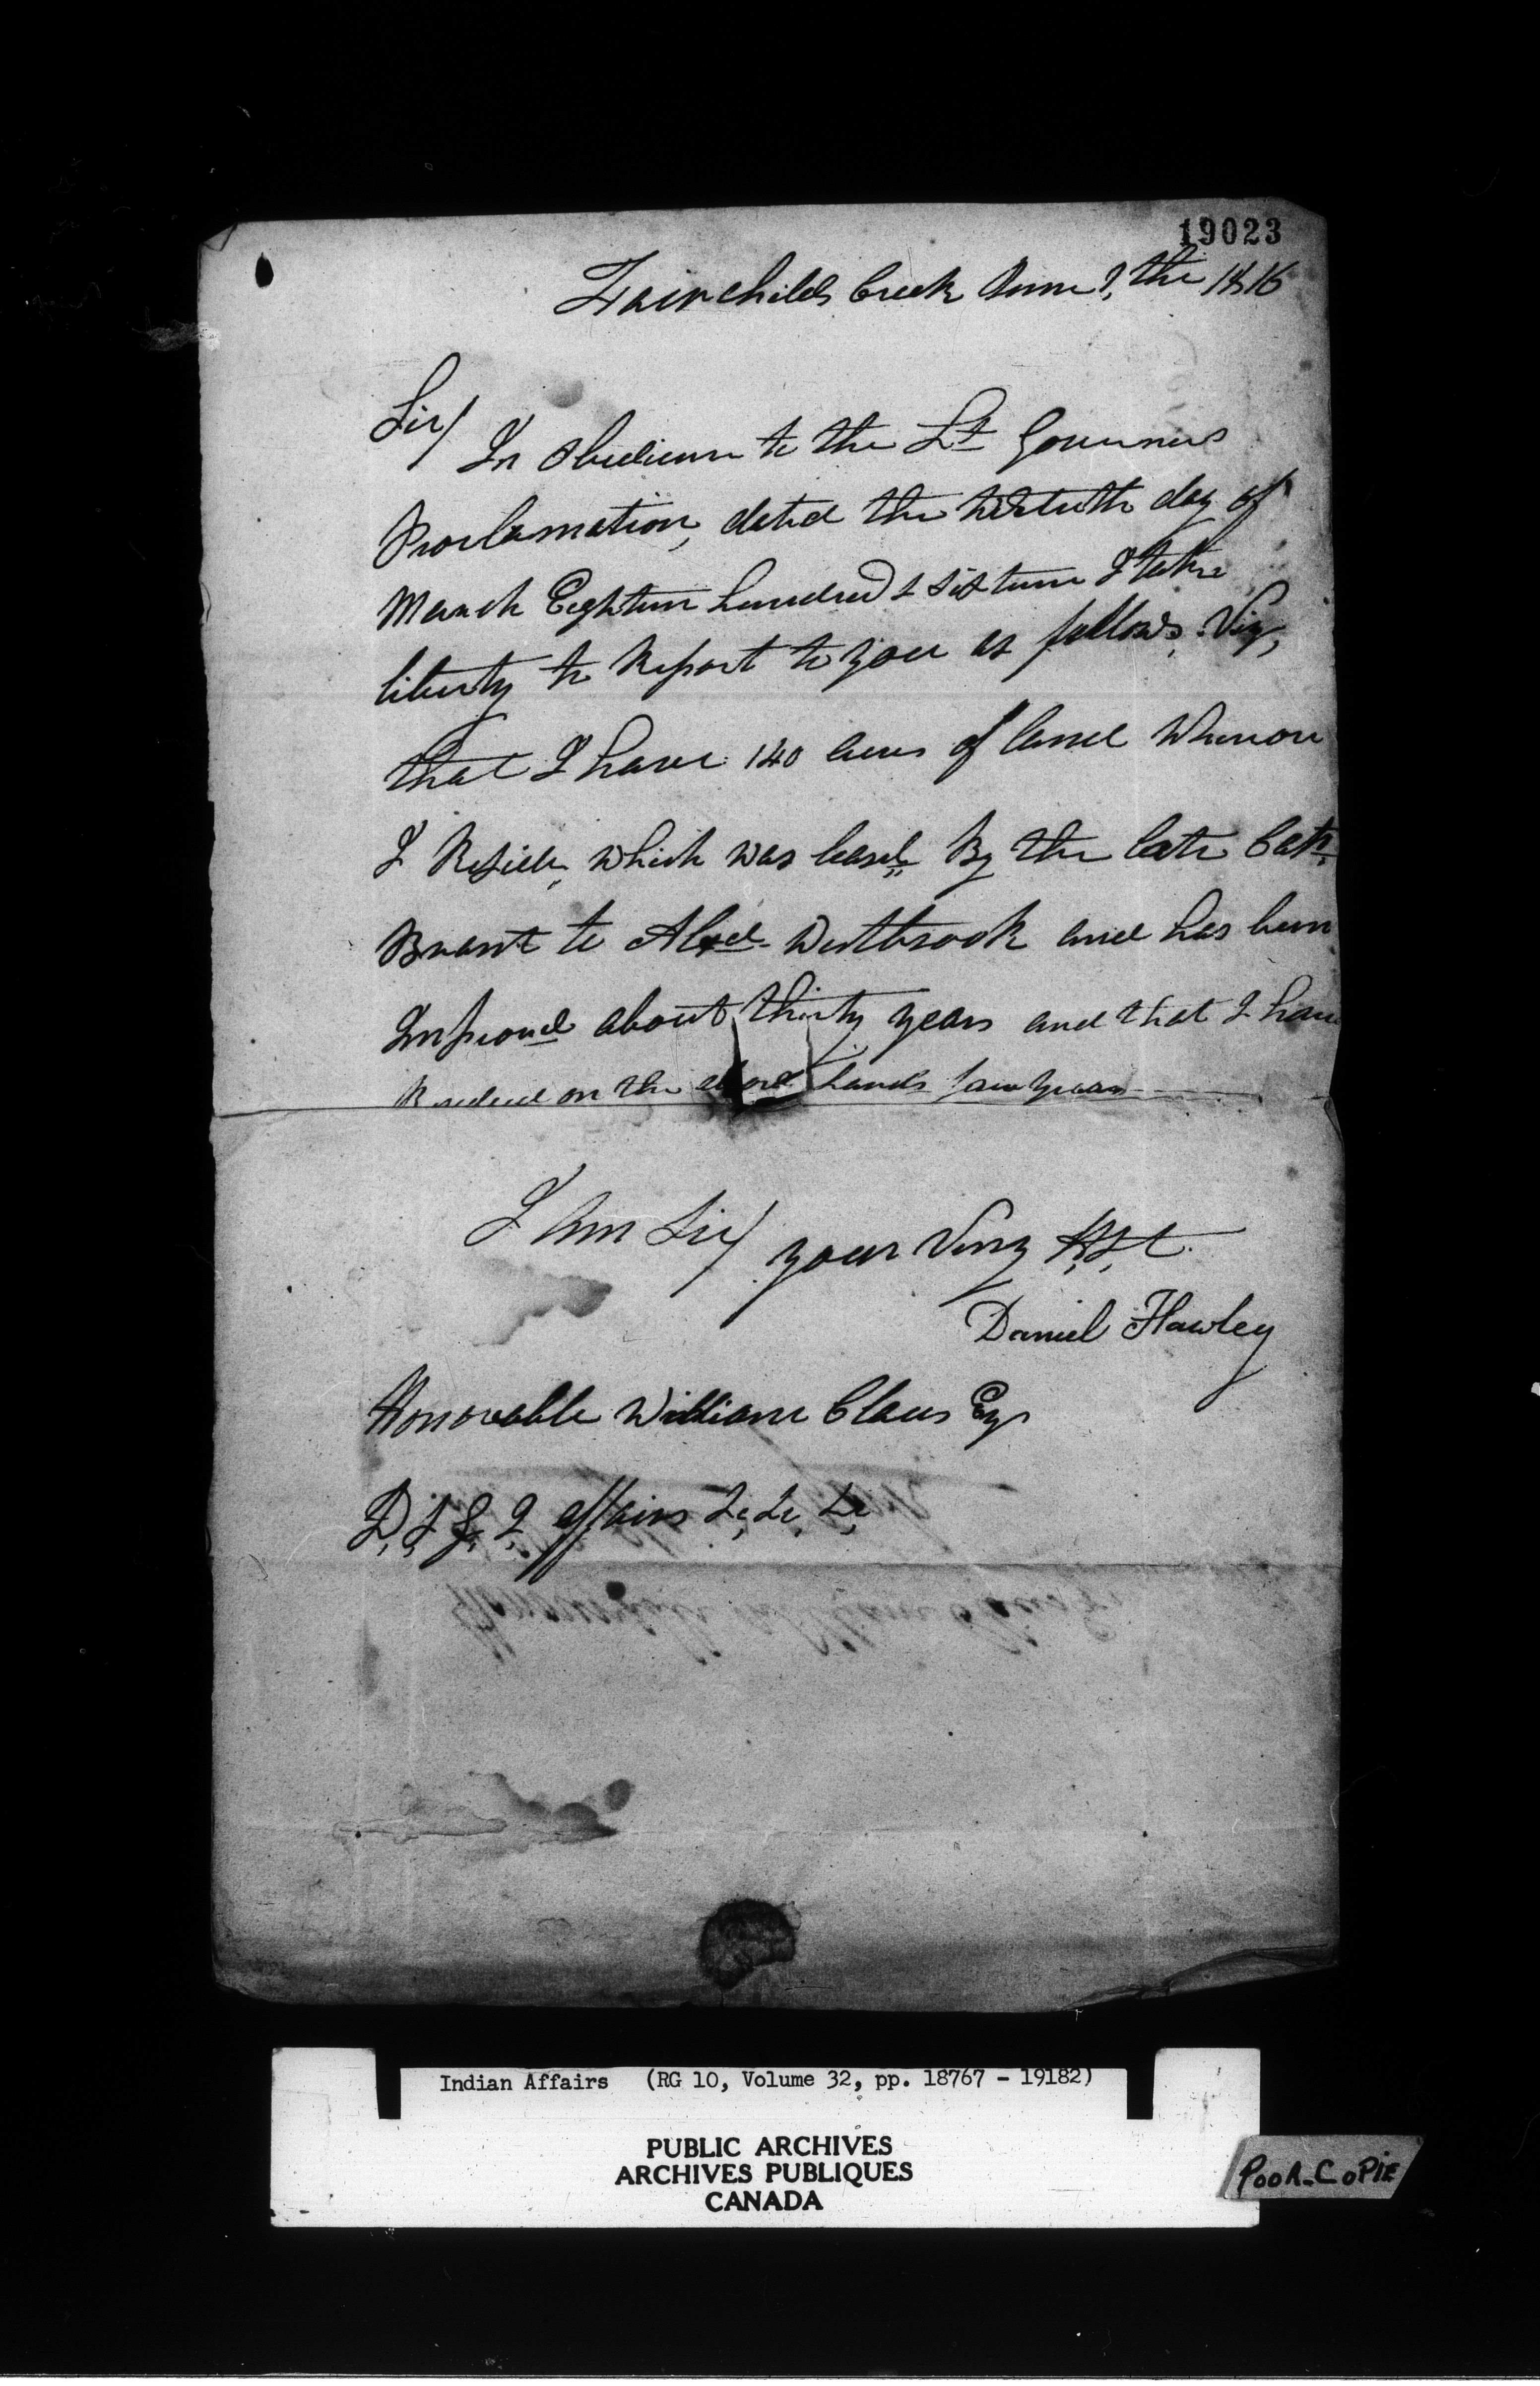 19023
Fairchilds Creek June the 1816
Sir/ In Obedience to the Lt Governers
Proclamation, dated the day of
March Eighteen hundred & sixteen I take
liberty to Report to you as follows, Viz,
that I have 140 acres of land Whereon
I Reside, which was leasd By the late Capt
Brant to Alexd Westbrook and has been
Improved about thirty years and that I have
Resided on the above lands four years
I Am Sir/ your Very H, S, t
Daniel Hawley
Honorable William Claus Esqr
D, S, G, I, affairs &c, &c, &c,
Indian Affairs (RG 10, Volume 32, pp. 18767 - 19182)
PUBLIC ARCHIVES
ARCHIVES PUBLIQUES
CANADA
POOR-COPIE